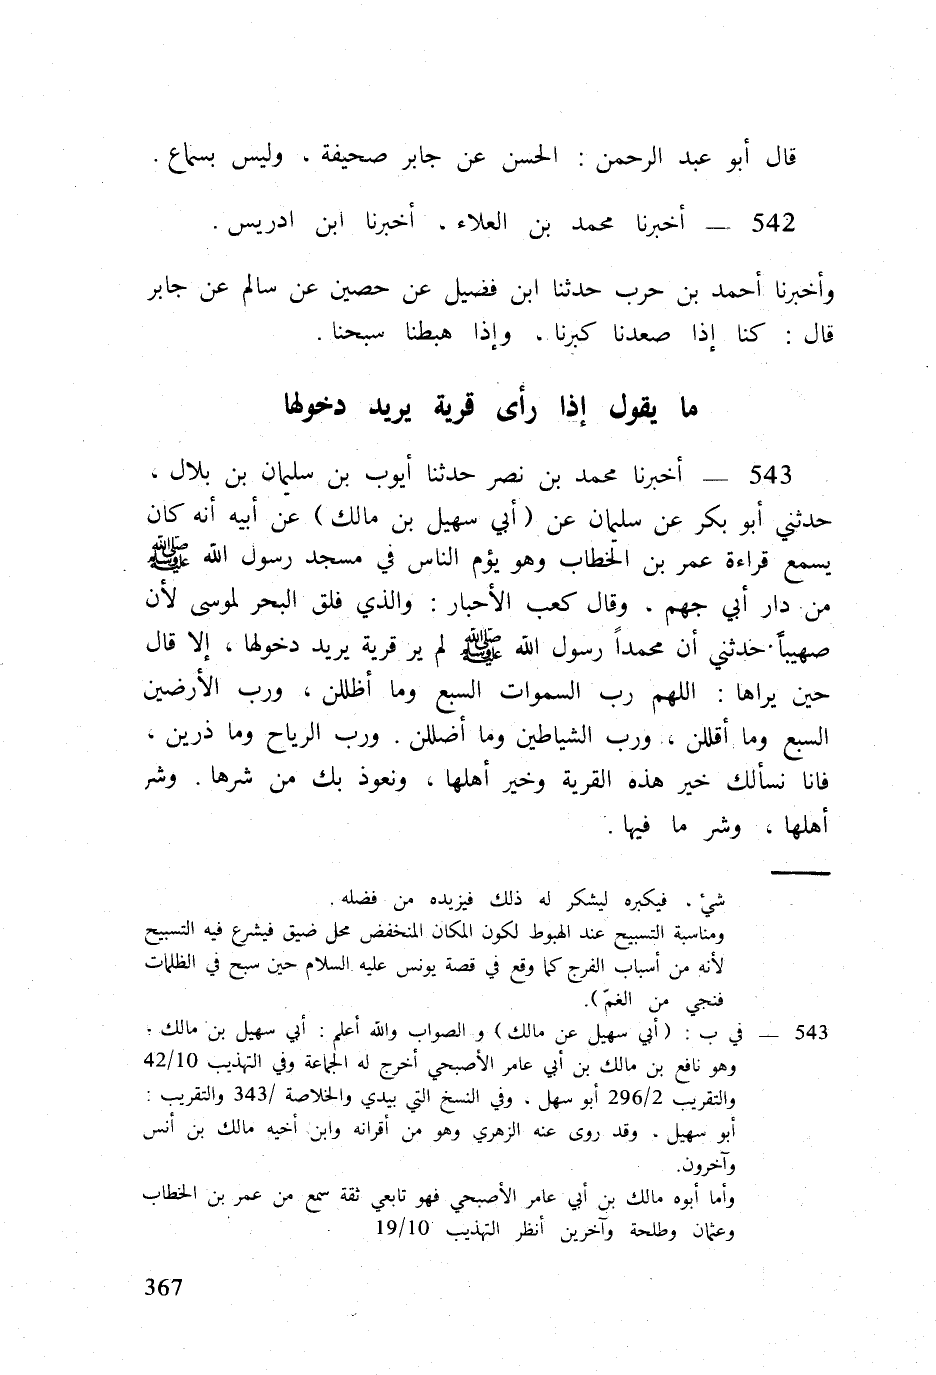 قال أبو عبد الرحمن : الحسن عن جابر صحيفة ، وليس بسماع .
542 — أخبرنا محمد بن العلاء ، أخبرنا ابن ادريس .
وأخبرنا أحمد بن حرب حدثنا ابن فضيل عن حصين عن سالم عن جابر
قال : كنا إذا صعدنا كبرنا ، وإذا هبطنا سبحنا .
ما يقول إذا رأى قرية يريد دخولها
543 — أخبرنا محمد بن نصر حدثنا أيوب بن سليمان بن بلال ،
حدثني أبو بكر عن سليمان عن ( أبي سهيل بن مالك ) عن أبيه أنه كان
يسمع قراءة عمر بن الخطاب وهو يؤم الناس في مسجد رسول الله ﷺ
من دار أبي جهم . وقال كعب الأحبار : والذي فلق البحر لموسى لأن
صهيباً حدثني أن محمداً رسول الله ﷺ لم ير قرية يريد دخولها ، إلا قال
حين يراها : اللهم رب السموات السبع وما أظللن ، ورب الأرضين
السبع وما أقللن ، ورب الشياطين وما أضللن . ورب الرياح وما ذرين ،
فانا نسألك خير هذه القرية وخير أهلها ، ونعوذ بك من شرها . وشر
أهلها ، وشر ما فيها .
شيء ، فيكبره ليشكر له ذلك فيزيده من فضله .
ومناسبة التسبيح عند الهبوط لكون المكان المنخفض محل ضيق فيشرع فيه التسبيح
لأنه من أسباب الفرج كما وقع في قصة يونس عليه السلام حين سبح في الظلمات
فنجي من الغمّ).
543 — في ب : ( أبي سهيل عن مالك ) و الصواب والله أعلم : أبي سهيل بن مالك ؛
وهو نافع بن مالك بن أبي عامر الأصبحي أخرج له الجماعة وفي التهذيب 42/10
والتقريب 296/2 أبو سهل . وفي النسخ التي بيدي والخلاصة /343 والتقريب :
أبو سهيل . وقد روى عنه الزهري وهو من أقرانه وابن أخيه مالك بن أنس
وآخرون.
وأما أبوه مالك بن أبي عامر الأصبحي فهو تابعي ثقة سمع من عمر بن الخطاب
وعثمان وطلحة وآخرين أنظر التهذيب 19/10
367